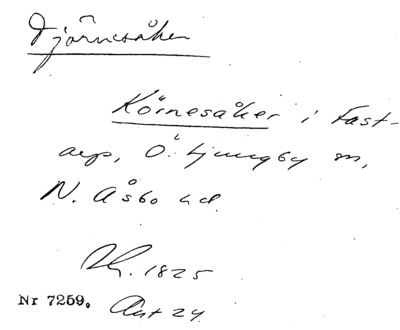 Djörnesåker
Körnesåker i Fast-
arp, Ö. Ljungby sn,
N. Åsbo hd.
Lh. 1825
Nr 7259. Akt 24